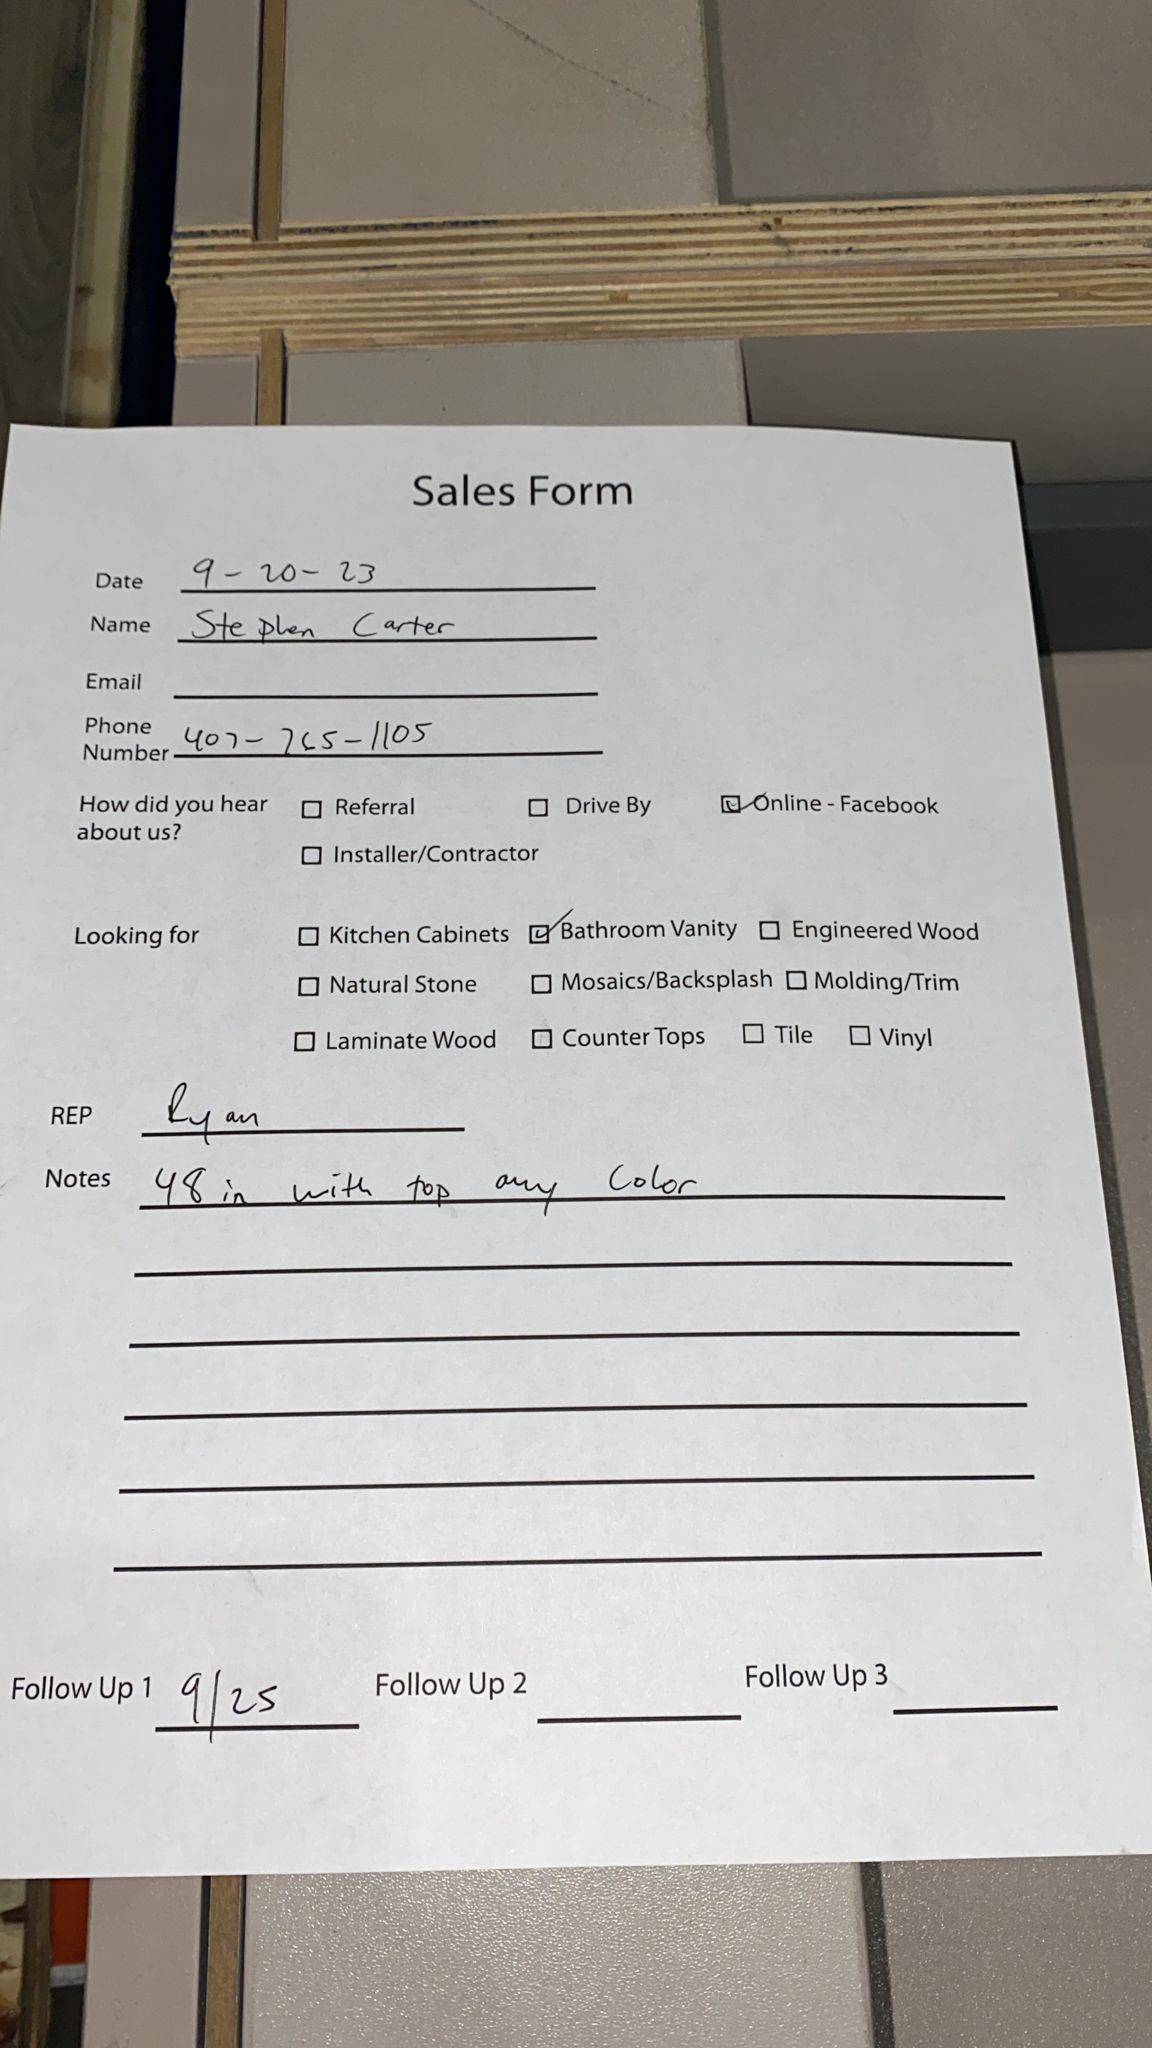 Sales Form
Date 9-20-23
Name Stephen Carter
Email
Phone Number 407-765-1105
How did you hear about us? Referral Drive By Online - Facebook
Installer/Contractor
Looking for Kitchen Cabinets Bathroom Vanity Engineered Wood
Natural Stone Mosaics/Backsplash Molding/Trim
Laminate Wood Counter Tops Tile Vinyl
REP Ryan
Notes 48 in with top any color
Follow Up 1 9/25 Follow Up 2 Follow Up 3